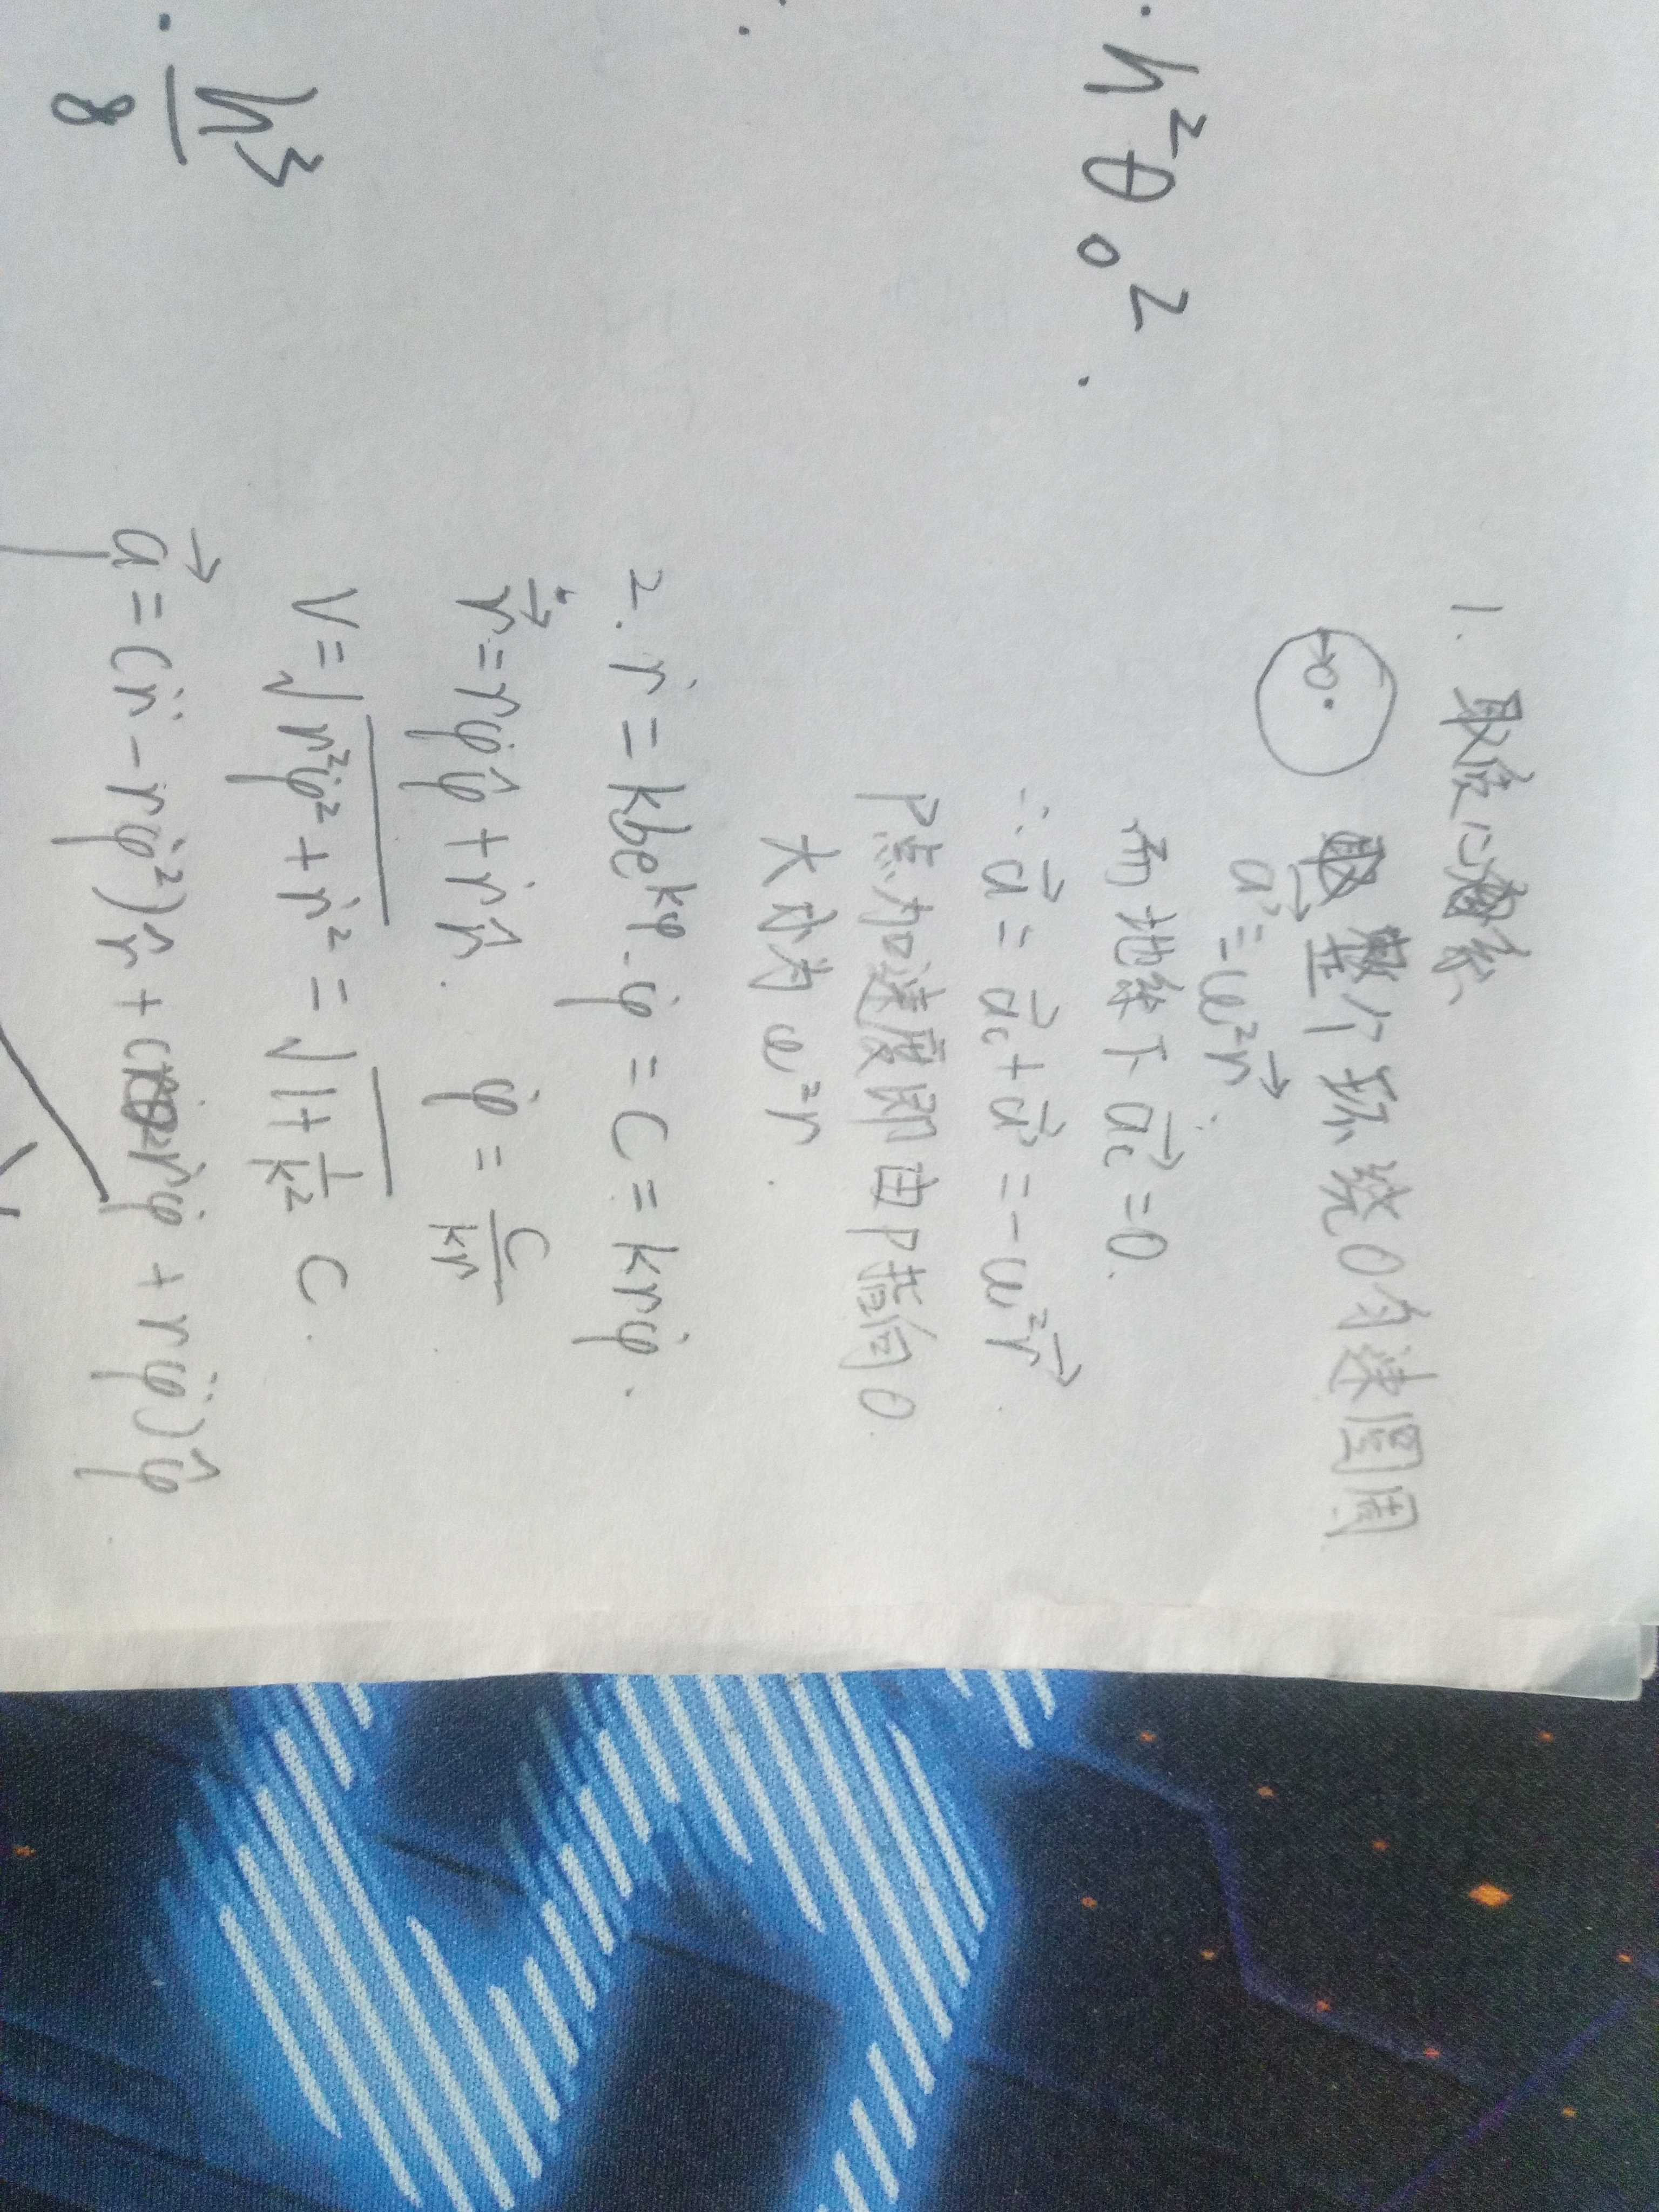 h²θ₀².
h³/8
1. 取质心系
O
整个环绕O匀速圆周
a⃗' = ω²r⃗.
而地系下 a⃗c = 0.
∴ a⃗ = a⃗c + a⃗' = -ω²r⃗.
P点加速度即由P指向O
大小为 ω²r.
2. ṙ = kbe^{kφ}·φ̇ = C = krφ̇.
r⃗̇ = rφ̇φ̂ + ṙr̂. φ̇ = C/(kr)
V = √(r²φ̇² + ṙ²) = √(1+1/k²) C.
a⃗ = (r̈ - rφ̇²)r̂ + (ṙφ̇ + rφ̈)φ̂